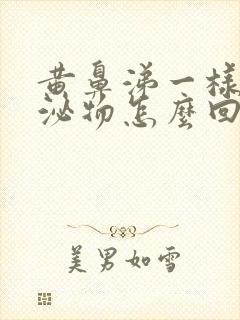 黄鼻涕一樣
泌物怎麼回
美男如雪